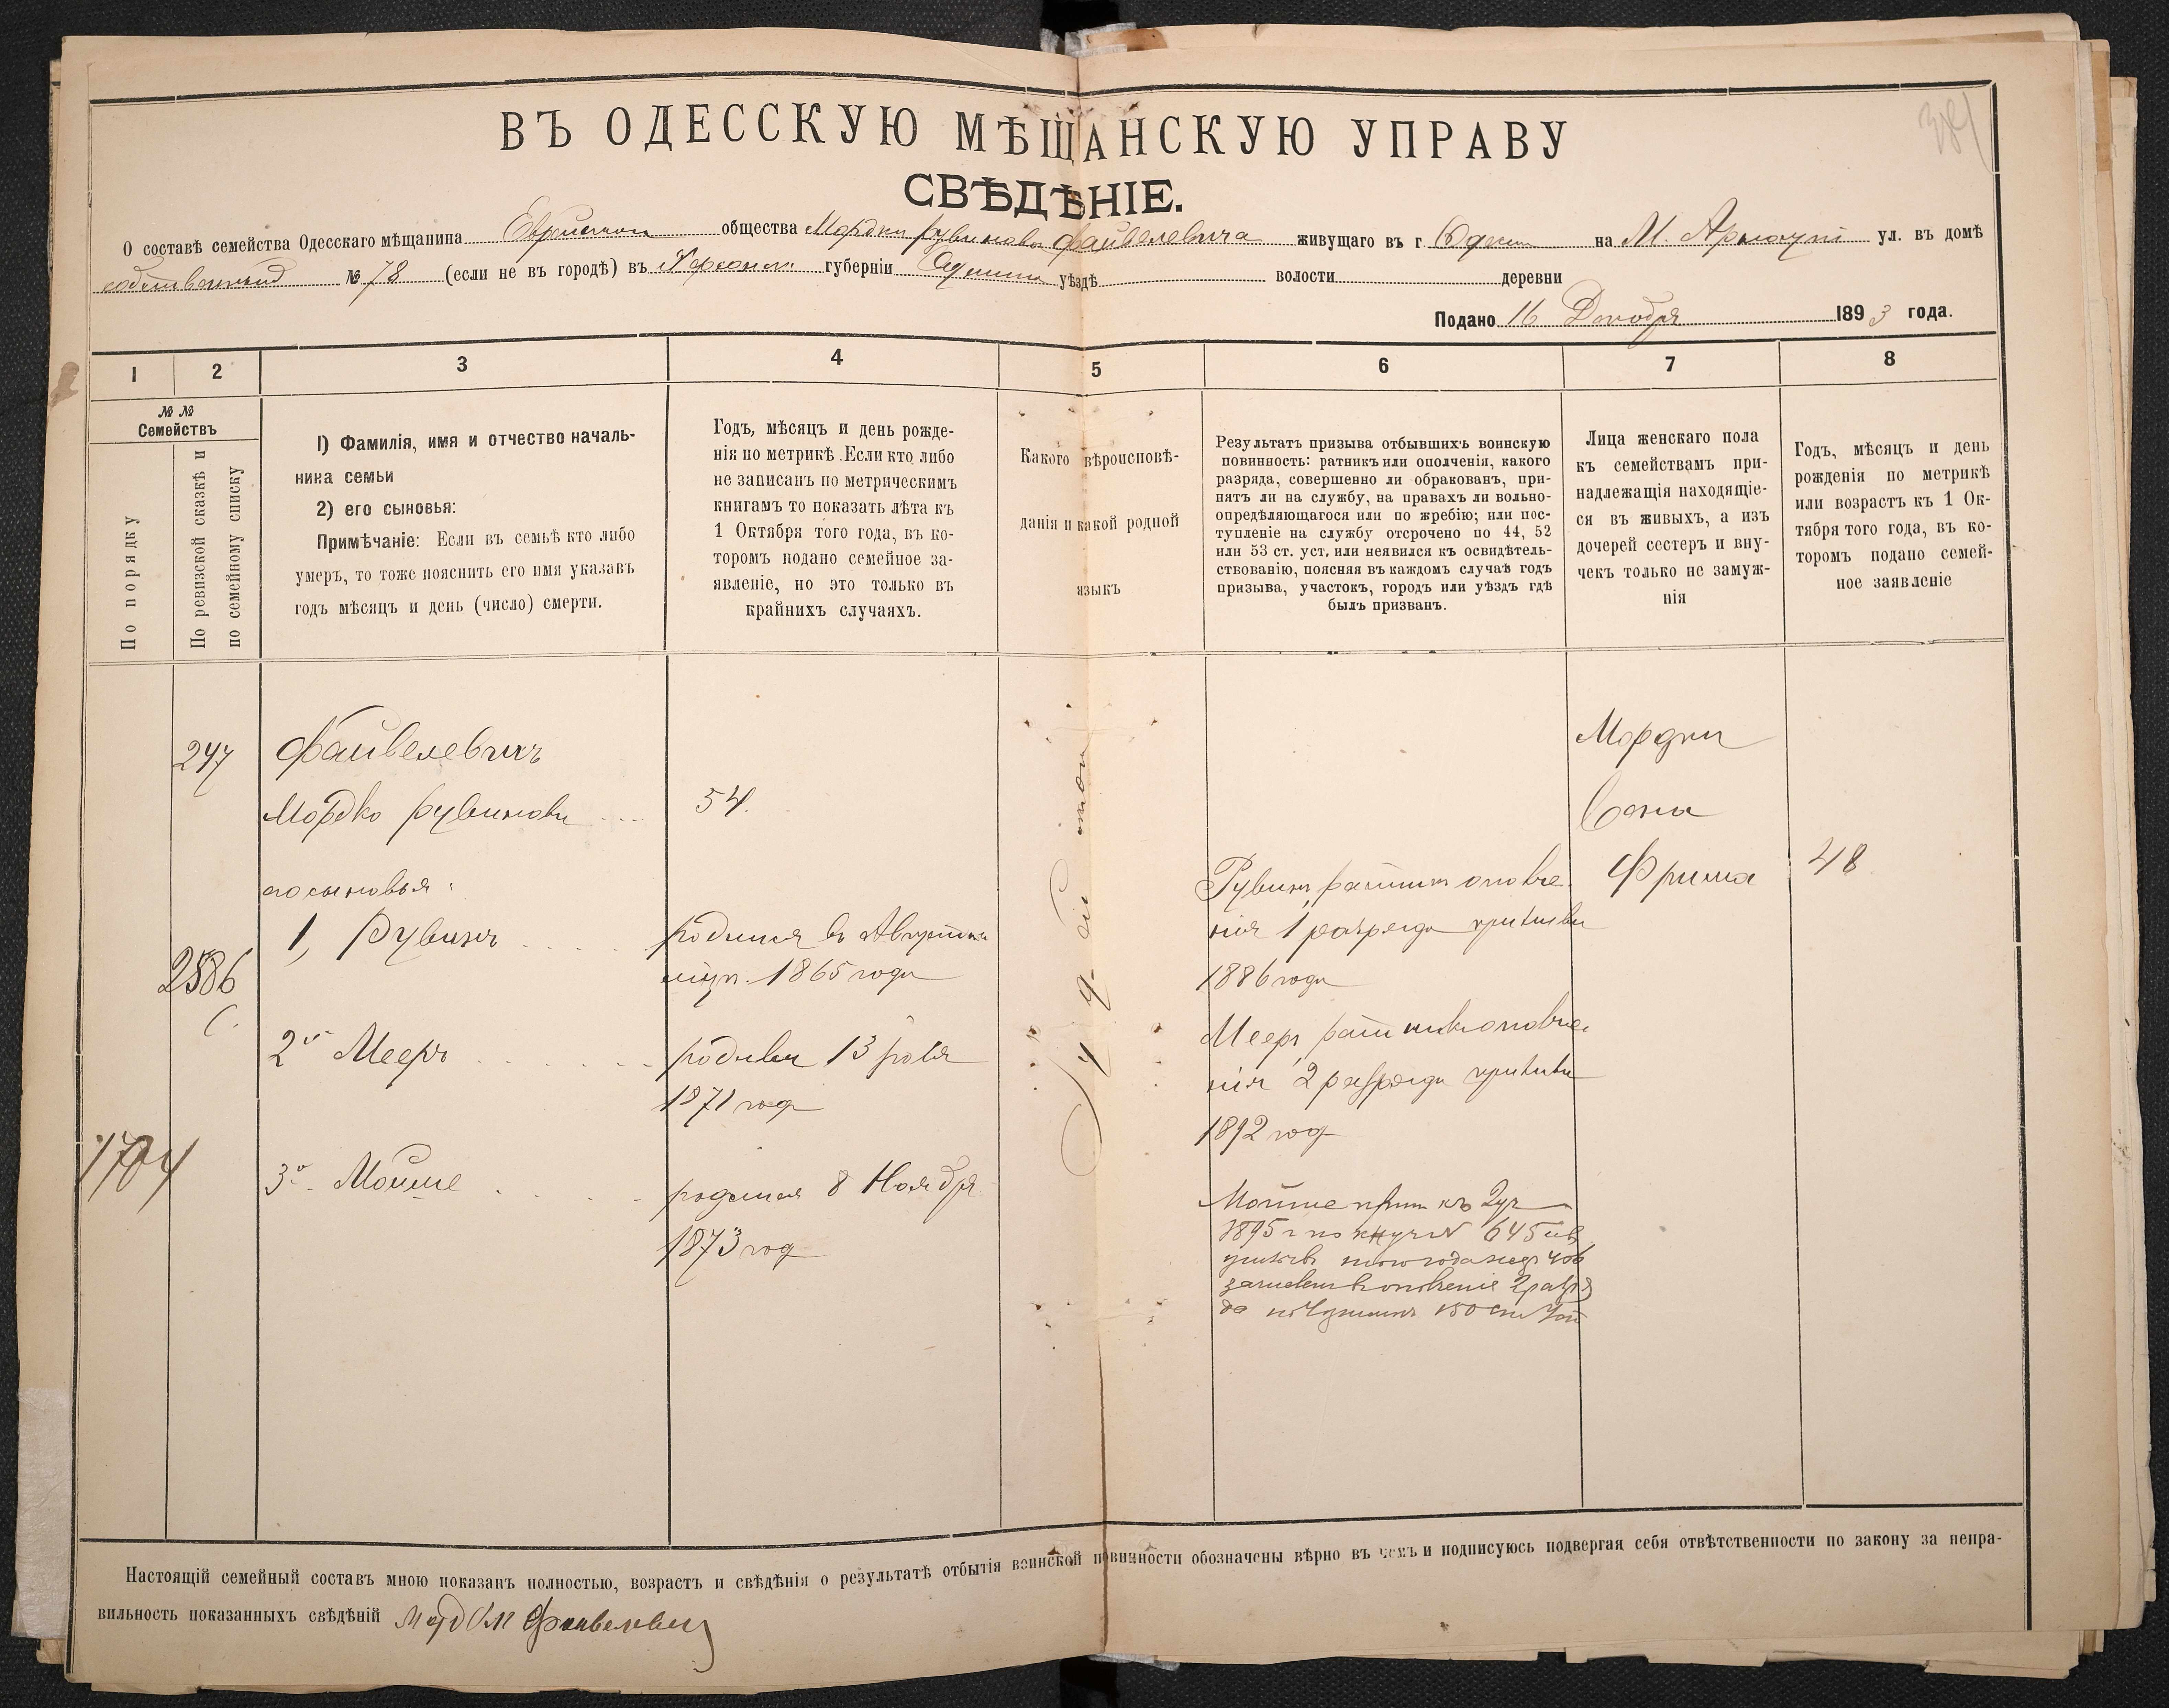 381
ВЪ ОДЕССКУЮ МѢЩАНСКУЮ УПРАВУ
СВѢДѢНІЕ.
О составѣ семейства Одесскаго мѣщанина Еврейскаго общества Мордки Рувинова Файвелевича живущаго въ г Одессѣ на М. Арнаутс ул. въ домѣ
собственный № 78 (если не въ городѣ) въ Херсонск губерніи Одесскомъ уѣздѣ волости деревни
Подано 16 Декабря 1893 года.
1 2 3 4 5 6 7 8
№ №
Семействъ
По порядку
По ревизской сказкѣ и
по семейному списку
1) Фамилія, имя и отчество началь-
ника семьи
2) его сыновья:
Примѣчаніе: Если въ семьѣ кто либо
умеръ, то тоже пояснить его имя указавъ
годъ мѣсяцъ и день (число) смерти.
Годъ, мѣсяцъ и день рожде-
нія по метрикѣ. Если кто либо
не записанъ по метрическимъ
книгамъ то показать лѣта къ
1 Октября того года, въ ко-
торомъ подано семейное за-
явленіе, но это только въ
крайнихъ случаяхъ.
Какого вѣроисповѣ-
данія и какой родной
языкъ
Результатъ призыва отбывшихъ воинскую
повинность: ратникъ или ополченія, какого
разряда, совершенно ли обракованъ, при-
нятъ ли на службу, на правахъ ли вольно-
опредѣляющагося или по жребію; или пос-
тупленіе на службу отсрочено по 44, 52
или 53 ст. уст. или неявился къ освидѣтель-
ствованію, поясняя въ каждомъ случаѣ годъ
призыва, участокъ, городъ или уѣздъ гдѣ
былъ призванъ.
Лица женскаго пола
къ семействамъ при-
надлежащія находящіе-
ся въ живыхъ, а изъ
дочерей сестеръ и вну-
чекъ только не замуж-
нія
Годъ, мѣсяцъ и день
рожденія по метрикѣ
или возрастъ къ 1 Ок-
тября того года, въ ко-
торомъ подано семей-
ное заявленіе
247
Файвелевичъ
Мордко Рувиновъ
54.
его сыновья:
1, Рувинъ
родился въ Августѣ
мцѣ. 1865 года
2586
2й Мееръ
родился 13 Юля
1871 год
1704
3й Мойше
родился 8 Ноября
1873 год
Іудейской
Рувинъ, ратникъ ополче-
нія 1 разряда призыва
1886 года
Мееръ, ратникъ ополче-
нія 2 разряда призыва
1892 год
Мойше приз къ 2 уч
1895 г по № 645
зачисленъ въ ополченіе 2 разря
да
Мордки
жена
Фрима
48
Настоящій семейный составъ мною показанъ полностью, возрастъ и свѣдѣнія о результатѣ отбытія воинской повинности обозначены вѣрно въ чемъ и подписуюсь подвергая себя отвѣтственности по закону за непра-
вильность показанныхъ свѣдѣній Файвелевич